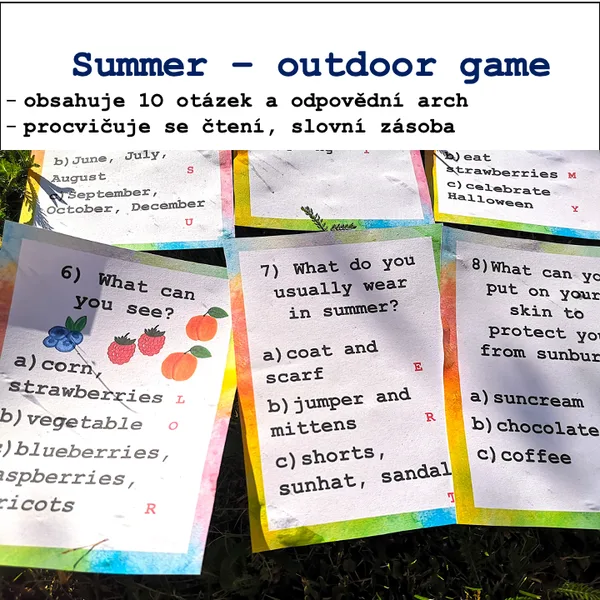 Summer – outdoor game
– obsahuje 10 otázek a odpovědní arch
– procvičuje se čtení, slovní zásoba
b)June, July,
August S
c)September,
October, December
U
b)eat
strawberries M
c)celebrate
Halloween Y
6) What can
you see?
a)corn,
strawberries L
b)vegetable O
blueberries,
R
7) What do you
usually wear
in summer?
a)coat and
scarf E
b)jumper and
mittens R
c)shorts,
sunhat, sandal
T
8)What can yo
put on your
skin to
protect yo
from sunbur
a)suncream
b)chocolate
c)coffee